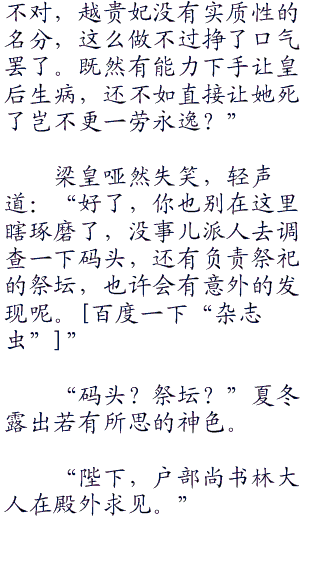 不对，越贵妃没有实质性的
名分，这么做不过挣了口气
罢了。既然有能力下手让皇
后生病，还不如直接让她死
了岂不更一劳永逸？”
梁皇哑然失笑，轻声
道：“好了，你也别在这里
瞎琢磨了，没事儿派人去调
查一下码头，还有负责祭祀
的祭坛，也许会有意外的发
现呢。[百度一下“杂志
虫”]”
“码头？祭坛？”夏冬
露出若有所思的神色。
“陛下，户部尚书林大
人在殿外求见。”